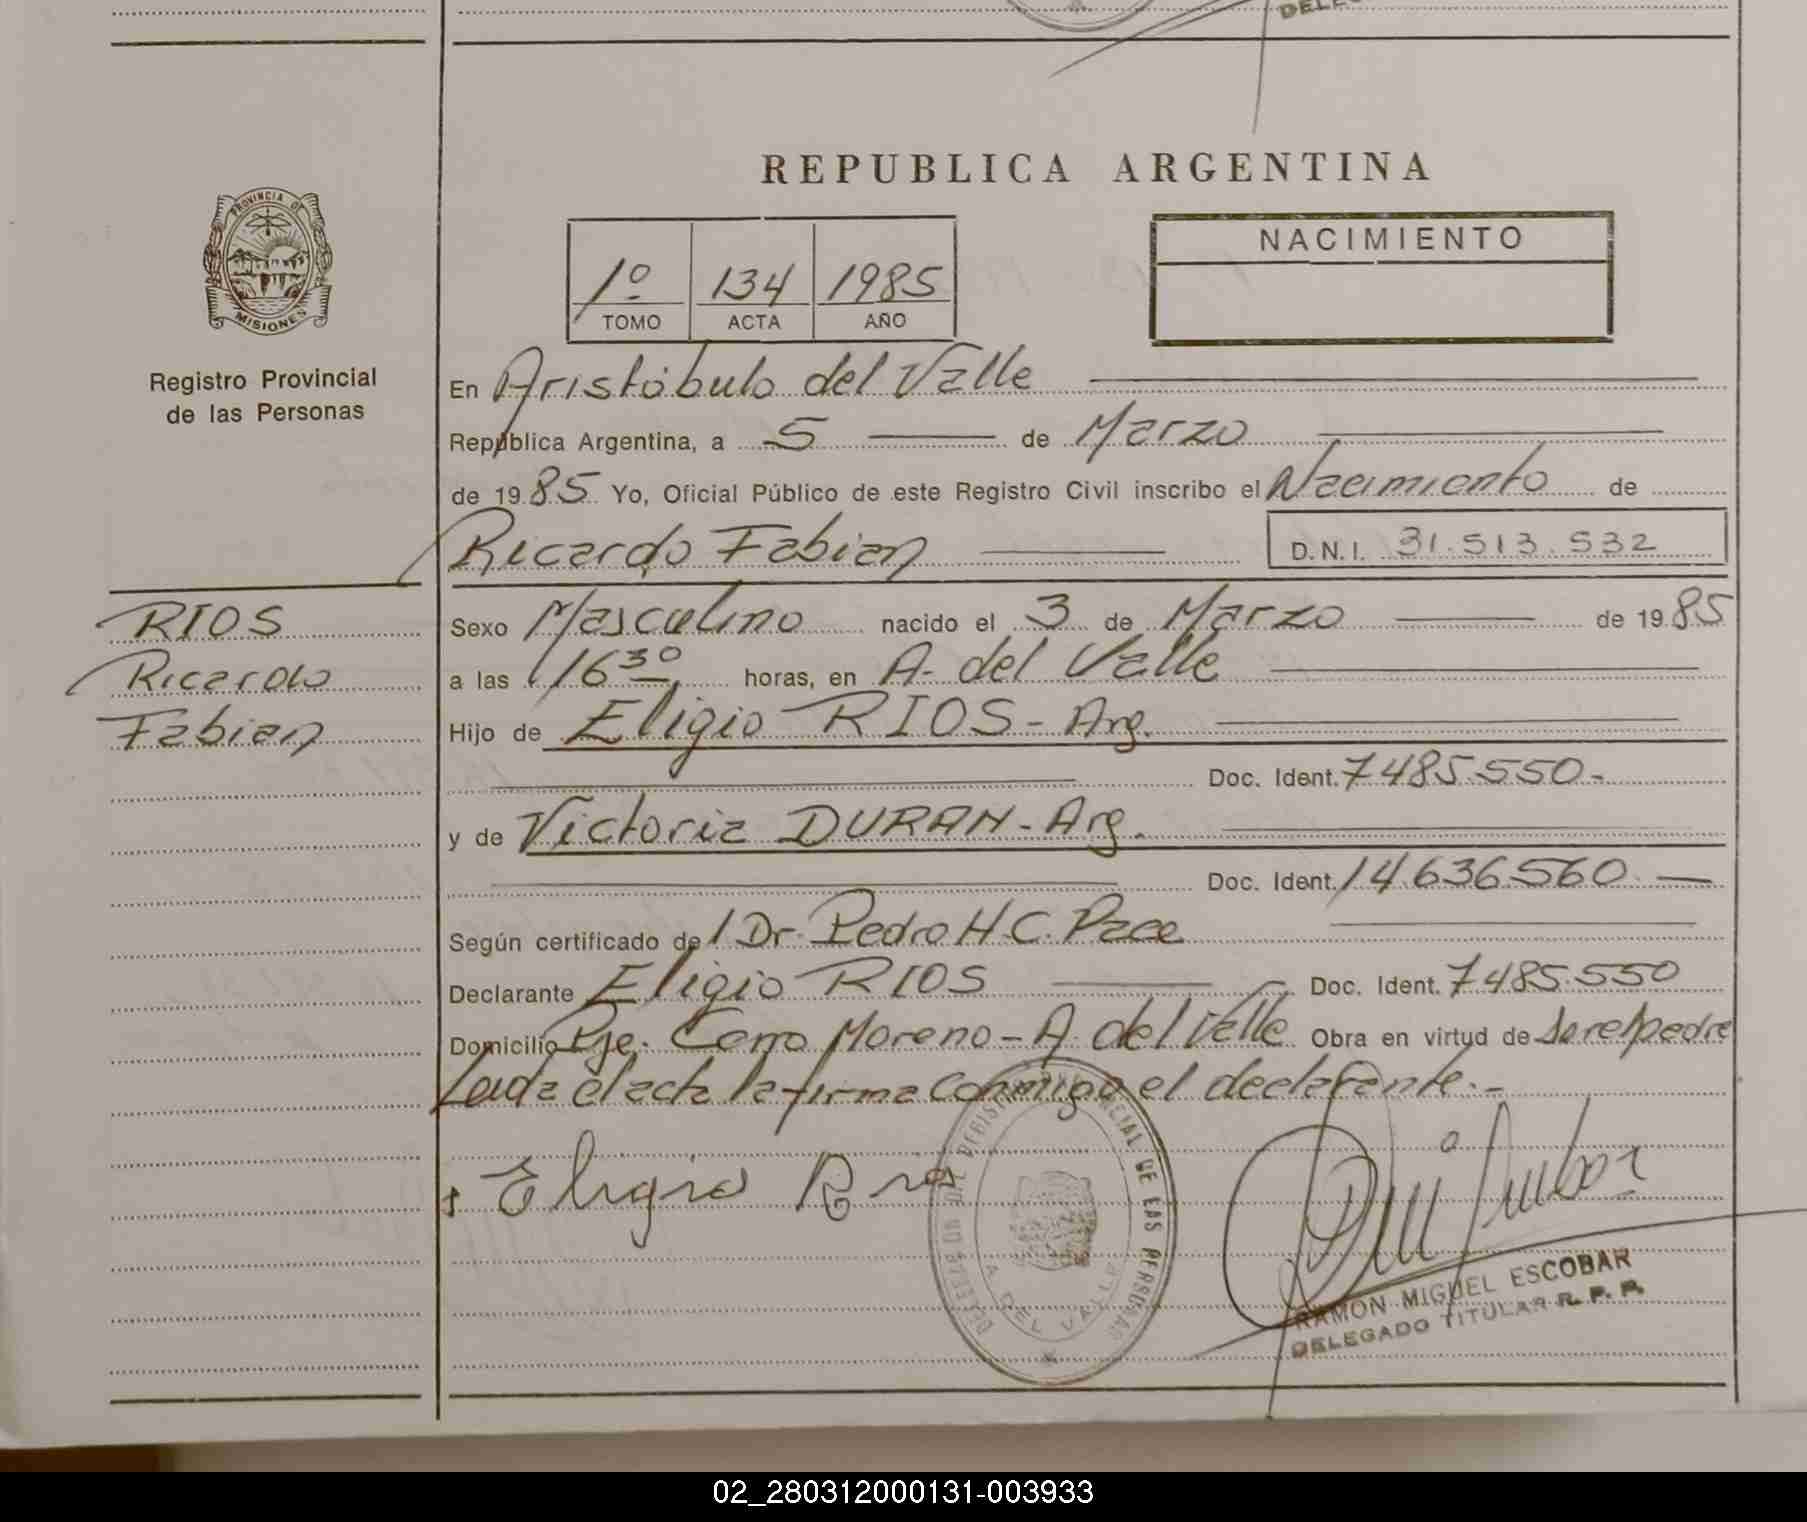 DELEG
REPUBLICA ARGENTINA
PROVINCIA DE
MISIONES
Registro Provincial
de las Personas
1º 134 1985
TOMO ACTA AÑO
NACIMIENTO
En Aristóbulo del Valle
República Argentina, a 5 de Marzo
de 1985 Yo, Oficial Público de este Registro Civil inscribo el Nacimiento de
Ricardo Fabian D.N.I. 31.513.532
RIOS
Ricardo
Fabian
Sexo Masculino nacido el 3 de Marzo de 1985
a las 16 30 horas, en A. del Valle
Hijo de Eligio RIOS - Arg.
Doc. Ident. 7485.550.-
y de Victoria DURAN - Arg.
Doc. Ident. 14.636.560.-
Según certificado de / Dr. Pedro H.C. Pace
Declarante Eligio RIOS Doc. Ident. 7485.550
Domicilio Pje. Cerro Moreno - A. del Valle Obra en virtud de ser el padre
Leida el acta la firma conmigo el declarante.-
Eligio Rios
DEL REGISTRO PROVINCIAL DE LAS PERSONAS
A. DEL VALLE
RAMON MIGUEL ESCOBAR
DELEGADO TITULAR R. P. P.
02_280312000131-003933